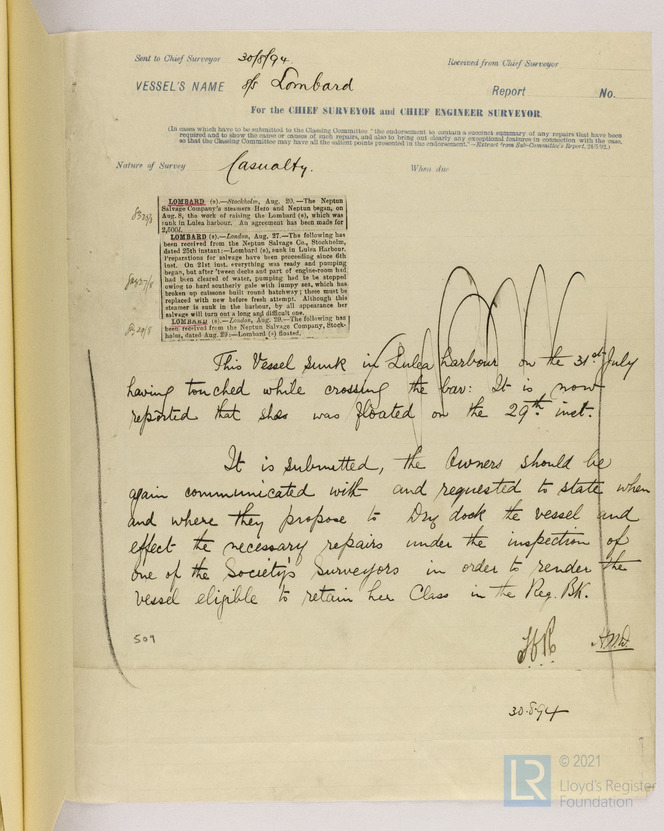 Sent to Chief Surveyor 30/8/94 Received from Chief Surveyor
VESSEL'S NAME s/s Lombard Report No.
For the CHIEF SURVEYOR and CHIEF ENGINEER SURVEYOR.
(In cases which have to be submitted to the Classing Committee "the endorsement to contain a succinct summary of any repairs that have been
required and to show the cause or causes of such repairs, and also to bring out clearly any exceptional features in connection with the case,
so that the Classing Committee may have all the salient points presented in the endorsement."—Extract from Sub-Committee's Report, 
Nature of Survey Casualty. When due
LOMBARD (s).—Stockholm, Aug. 20.—The Neptun
Salvage Company's steamers Hero and Neptun began, on
Aug. 8, the work of raising the Lombard (s), which was
sunk in Lulea harbour. An agreement has been made for
2,500l.
LOMBARD (s).—London, Aug. 27.—The following has
been received from the Neptun Salvage Co., Stockholm,
dated 25th instant:—Lombard (s), sunk in Lulea Harbour.
Preparations for salvage have been proceeding since 6th
inst. On 21st inst. everything was ready and pumping
began, but after 'tween decks and part of engine-room had
been cleared of water, pumping had to be stopped
owing to hard southerly gale with lumpy sea, which has
broken up caissons built round hatchway; these must be
replaced with new before fresh attempt. Although this
steamer is sunk in the harbour, by all appearance her
salvage will turn out a long and difficult one.
LOMBARD (s).—London, Aug. 29.—The following has
been received from the Neptun Salvage Company, Stock-
holm, dated Aug. 29:—Lombard (s) floated.
This Vessel sunk in Lulea harbour on the 31st July
having touched while crossing the bar: It is now
reported that she was floated on the 29th inst.
It is submitted, the Owners should be
again communicated with and requested to state when
and where they propose to Dry dock the vessel and
effect the necessary repairs under the inspection of
one of the Society's Surveyors in order to render the
vessel eligible to retain her Class in the Reg. BK.
509
30.8.94
LR © 2021
Lloyd's Register
Foundation